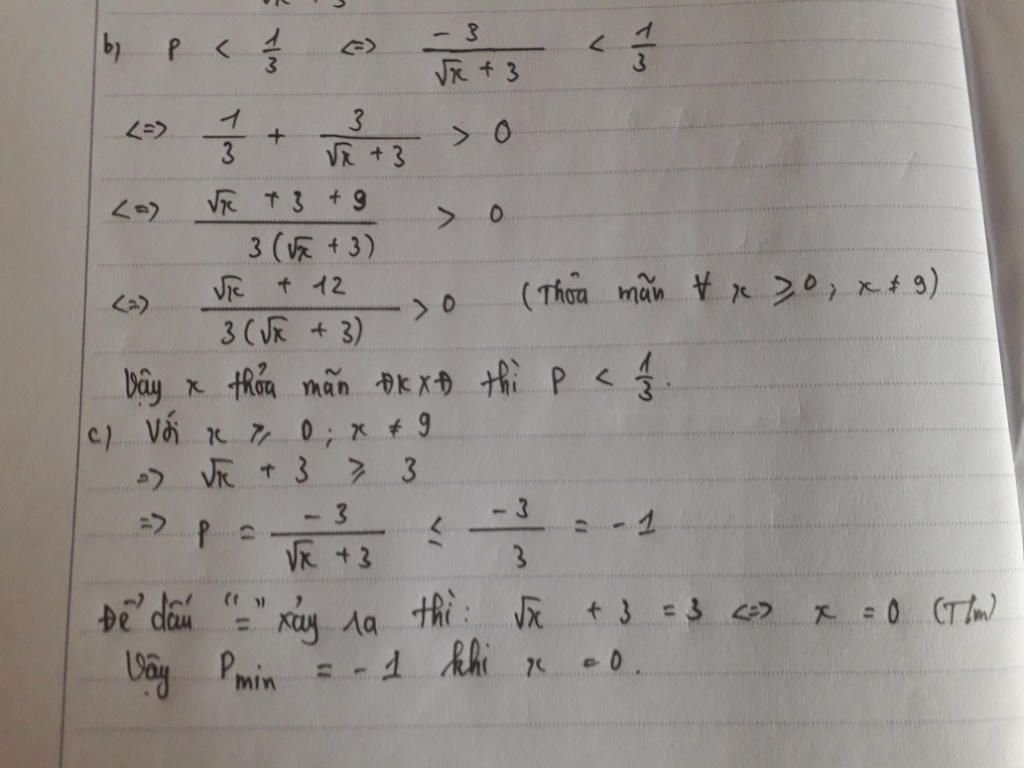 b) P < 1/3 <=> -3/(√x + 3) < 1/3
<=> 1/3 + 3/(√x + 3) > 0
<=> (√x + 3 + 9)/(3(√x + 3)) > 0
<=> (√x + 12)/(3(√x + 3)) > 0 (Thỏa mãn ∀ x ≥ 0; x ≠ 9)
Vậy x thỏa mãn ĐKXĐ thì P < 1/3.
c) Với x ≥ 0; x ≠ 9
=> √x + 3 ≥ 3
=> P = -3/(√x + 3) ≤ -3/3 = -1
Để dấu "=" xảy ra thì: √x + 3 = 3 <=> x = 0 (T/m)
Vậy Pmin = -1 khi x = 0.